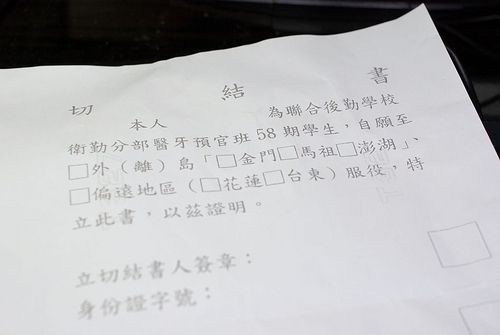 切 結 書
本人 為聯合後勤學校
衛勤分部醫牙預官班58期學生，自願至
□外（離）島「□金門□馬祖□澎湖」、
□偏遠地區（□花蓮□台東）服役，特
立此書，以茲證明。
立切結書人簽章：
身份證字號：